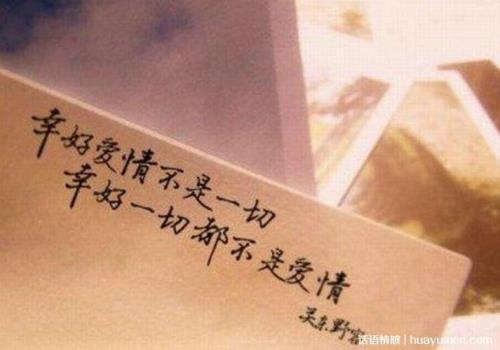 幸好爱情不是一切
幸好一切都不是爱情
话语情感 | huayuwen.com